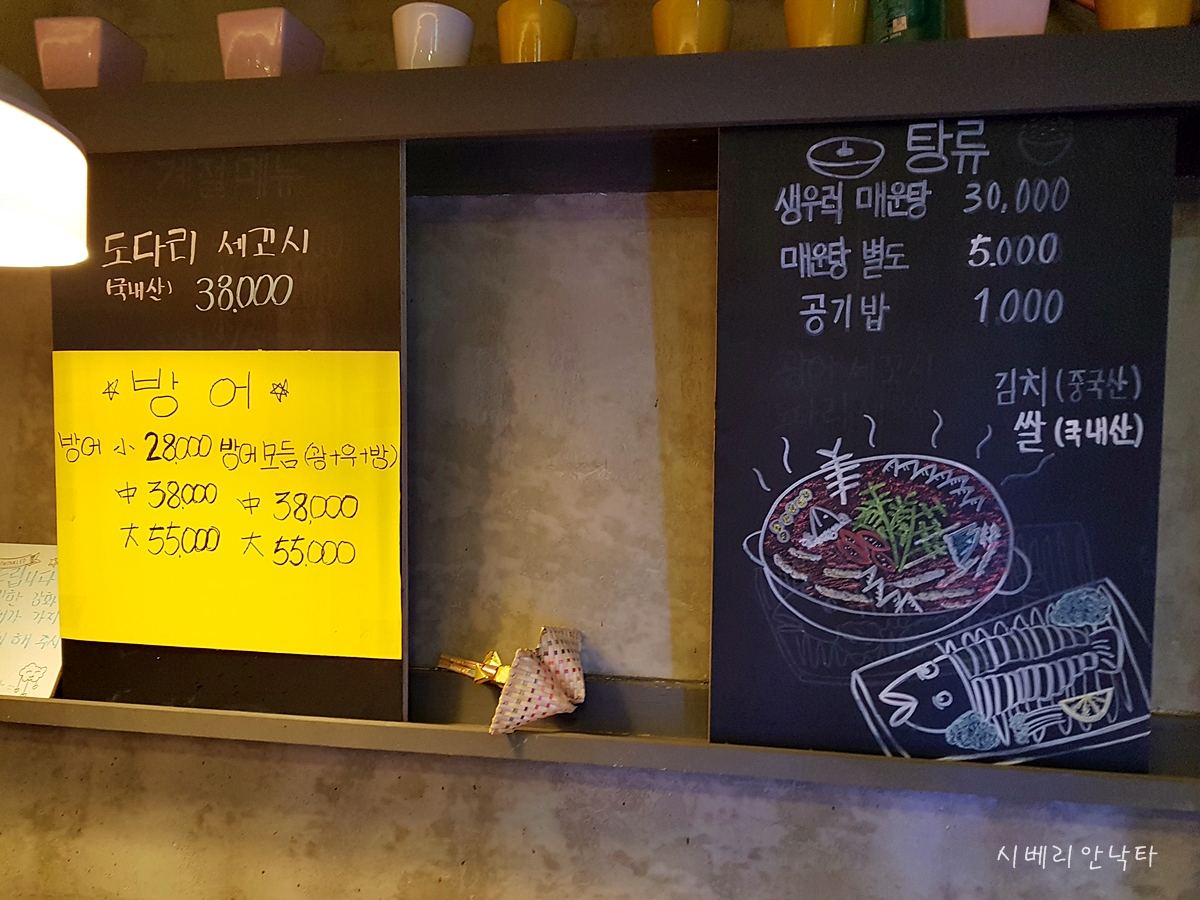 계절메뉴
도다리 세꼬시
(국내산) 38,000
☆ 방어 ☆
방어 小 28,000 방어모듬 (광+우+방)
中 38,000 中 38,000
大 55,000 大 55,000
탕류
생우럭 매운탕 30,000
매운탕 별도 5.000
공기밥 1.000
김치 (중국산)
쌀 (국내산)
시베리안낙타